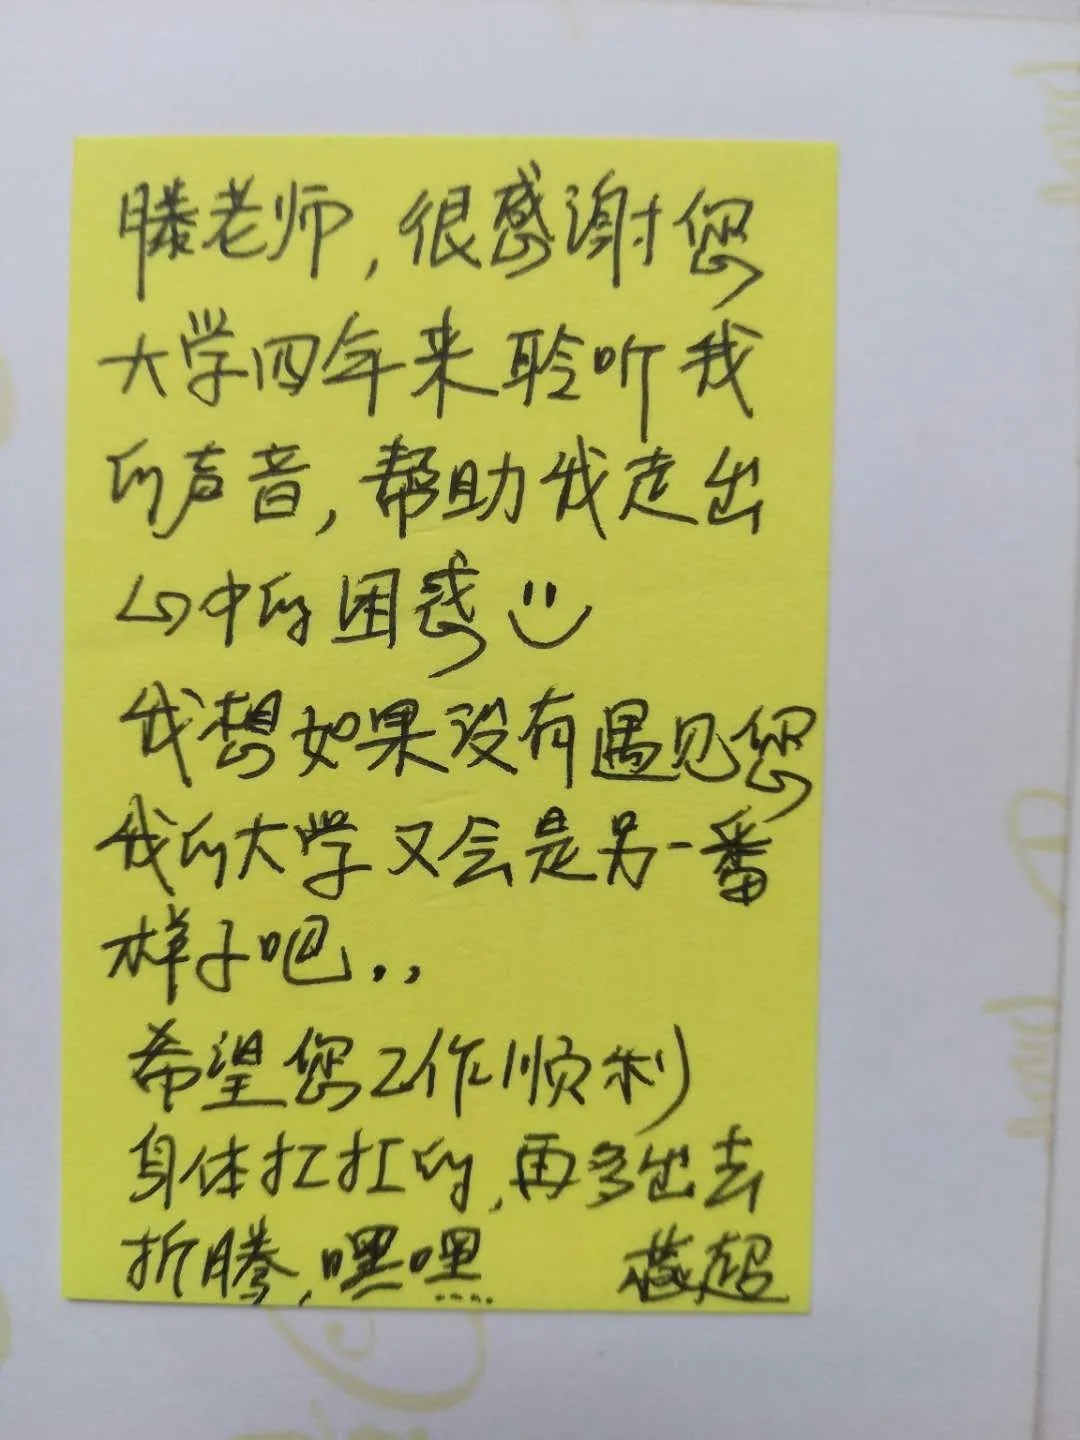 滕老师,很感谢您
大学四年来聆听我
的声音,帮助我走出
心中的困惑
我想如果没有遇见您
我的大学又会是另一番
样子吧..
希望您工作顺利
身体扛扛的,再多出去
折腾,嘿嘿 超